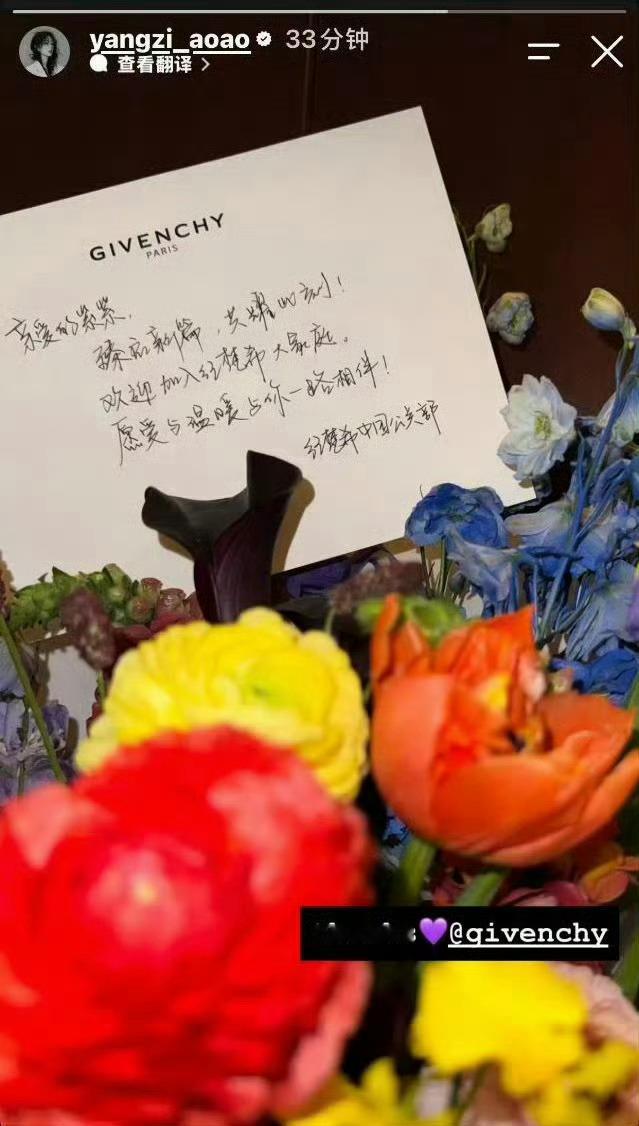 yangzi_aoao 33分钟
查看翻译
GIVENCHY
PARIS
亲爱的紫紫，
臻启新篇，共耀此刻！
欢迎加入纪梵希大家庭。
愿爱与温暖与你一路相伴！
纪梵希中国公关部
💜@givenchy